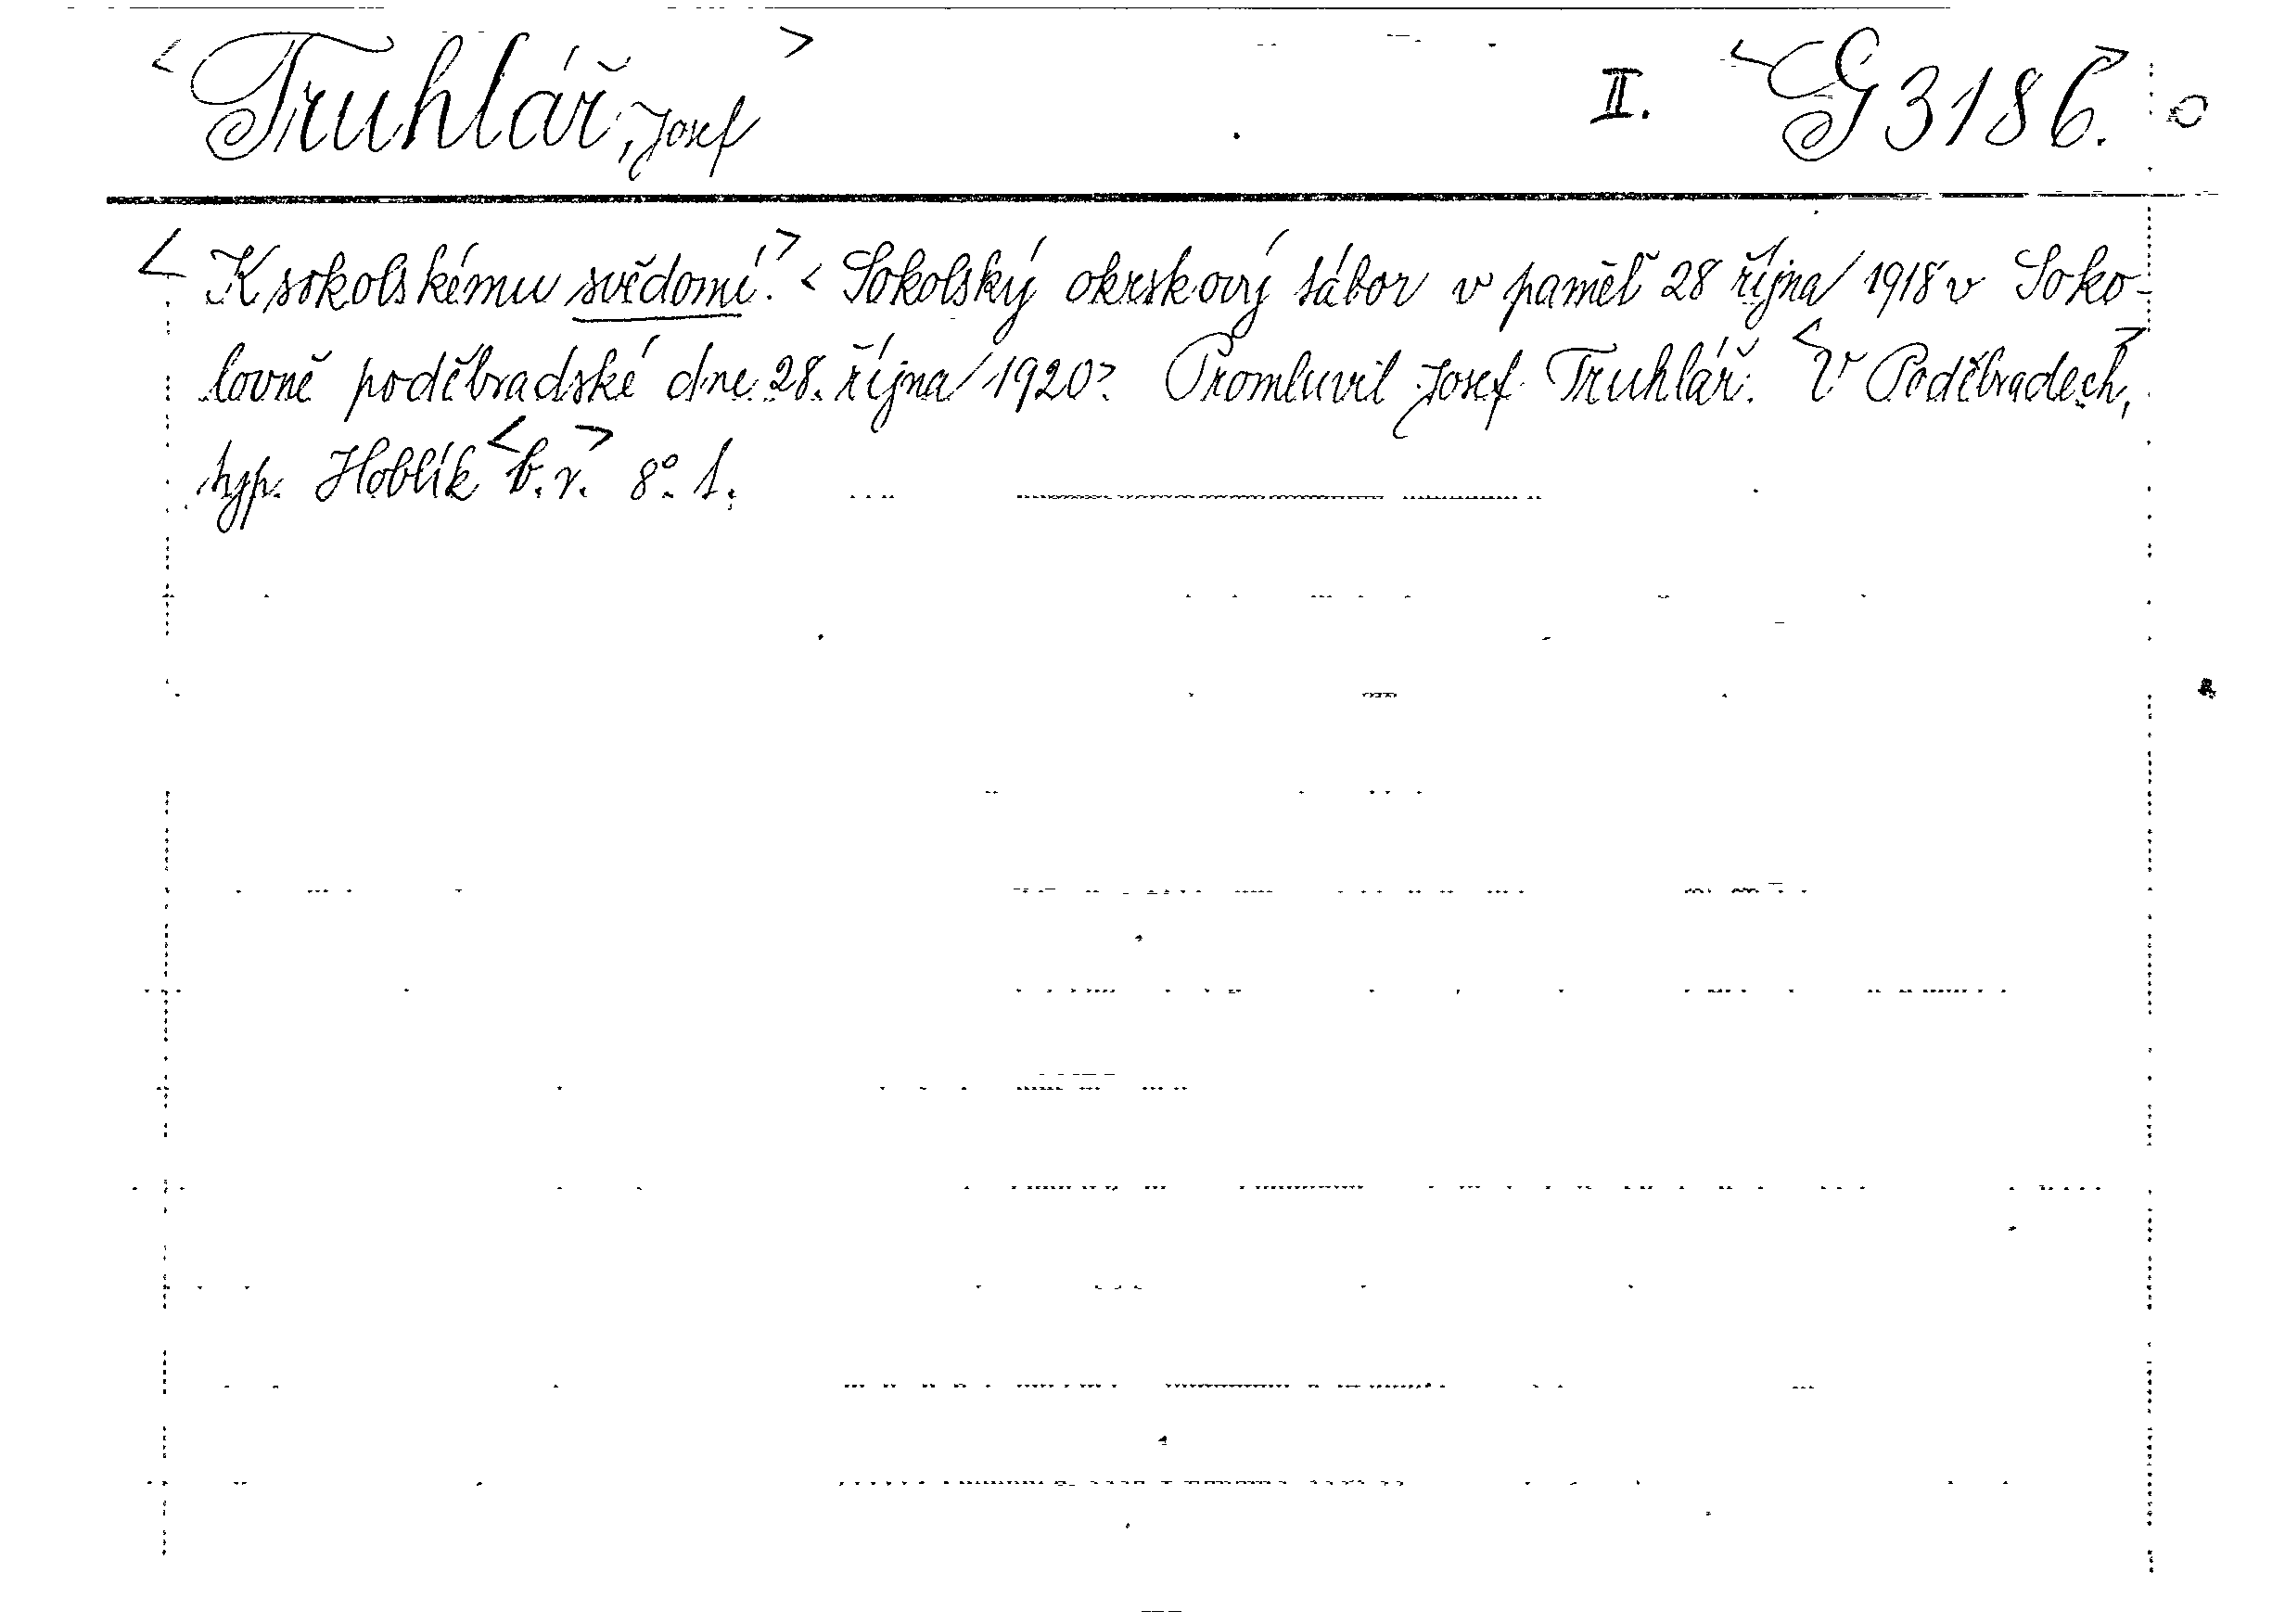 <Truhlář, Josef> II. <G 3186.>
<K sokolskému svědomí.> <Sokolský okrskový tábor v paměť 28 října 1918 v Soko-
lovně poděbradské dne 28. října 1920> Promluvil Josef Truhlář. <V Poděbradech,>
typ. Hoblík <b.r.> 8°. 1.